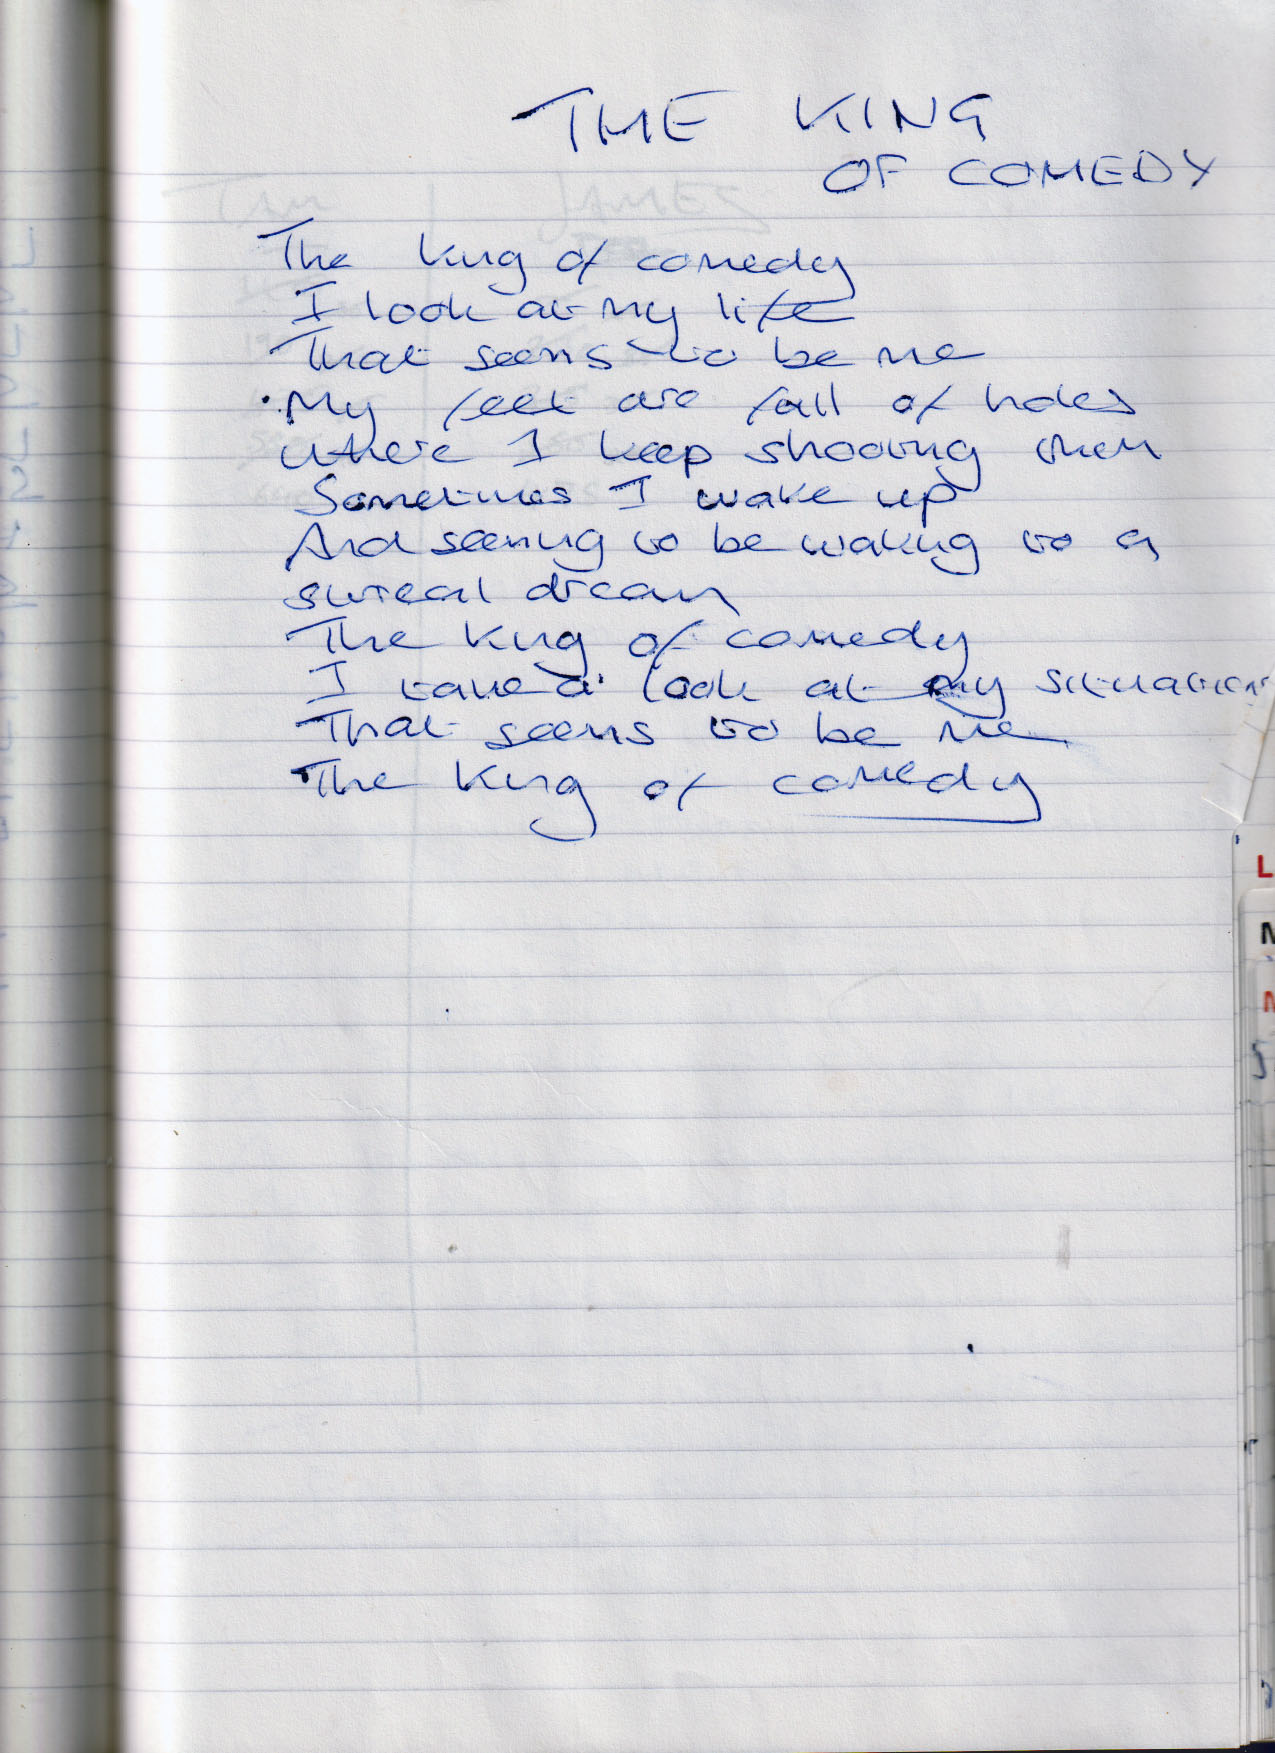 THE KING
OF COMEDY
TAM JAMES
The King of comedy
I look at my life
That seems to be me
My feet are full of holes
Where I keep shooting them
Sometimes I wake up
And seeming to be waking to a
surreal dream
The King of comedy
I take a look at my situation
That seems to be me
The King of comedy
L
M